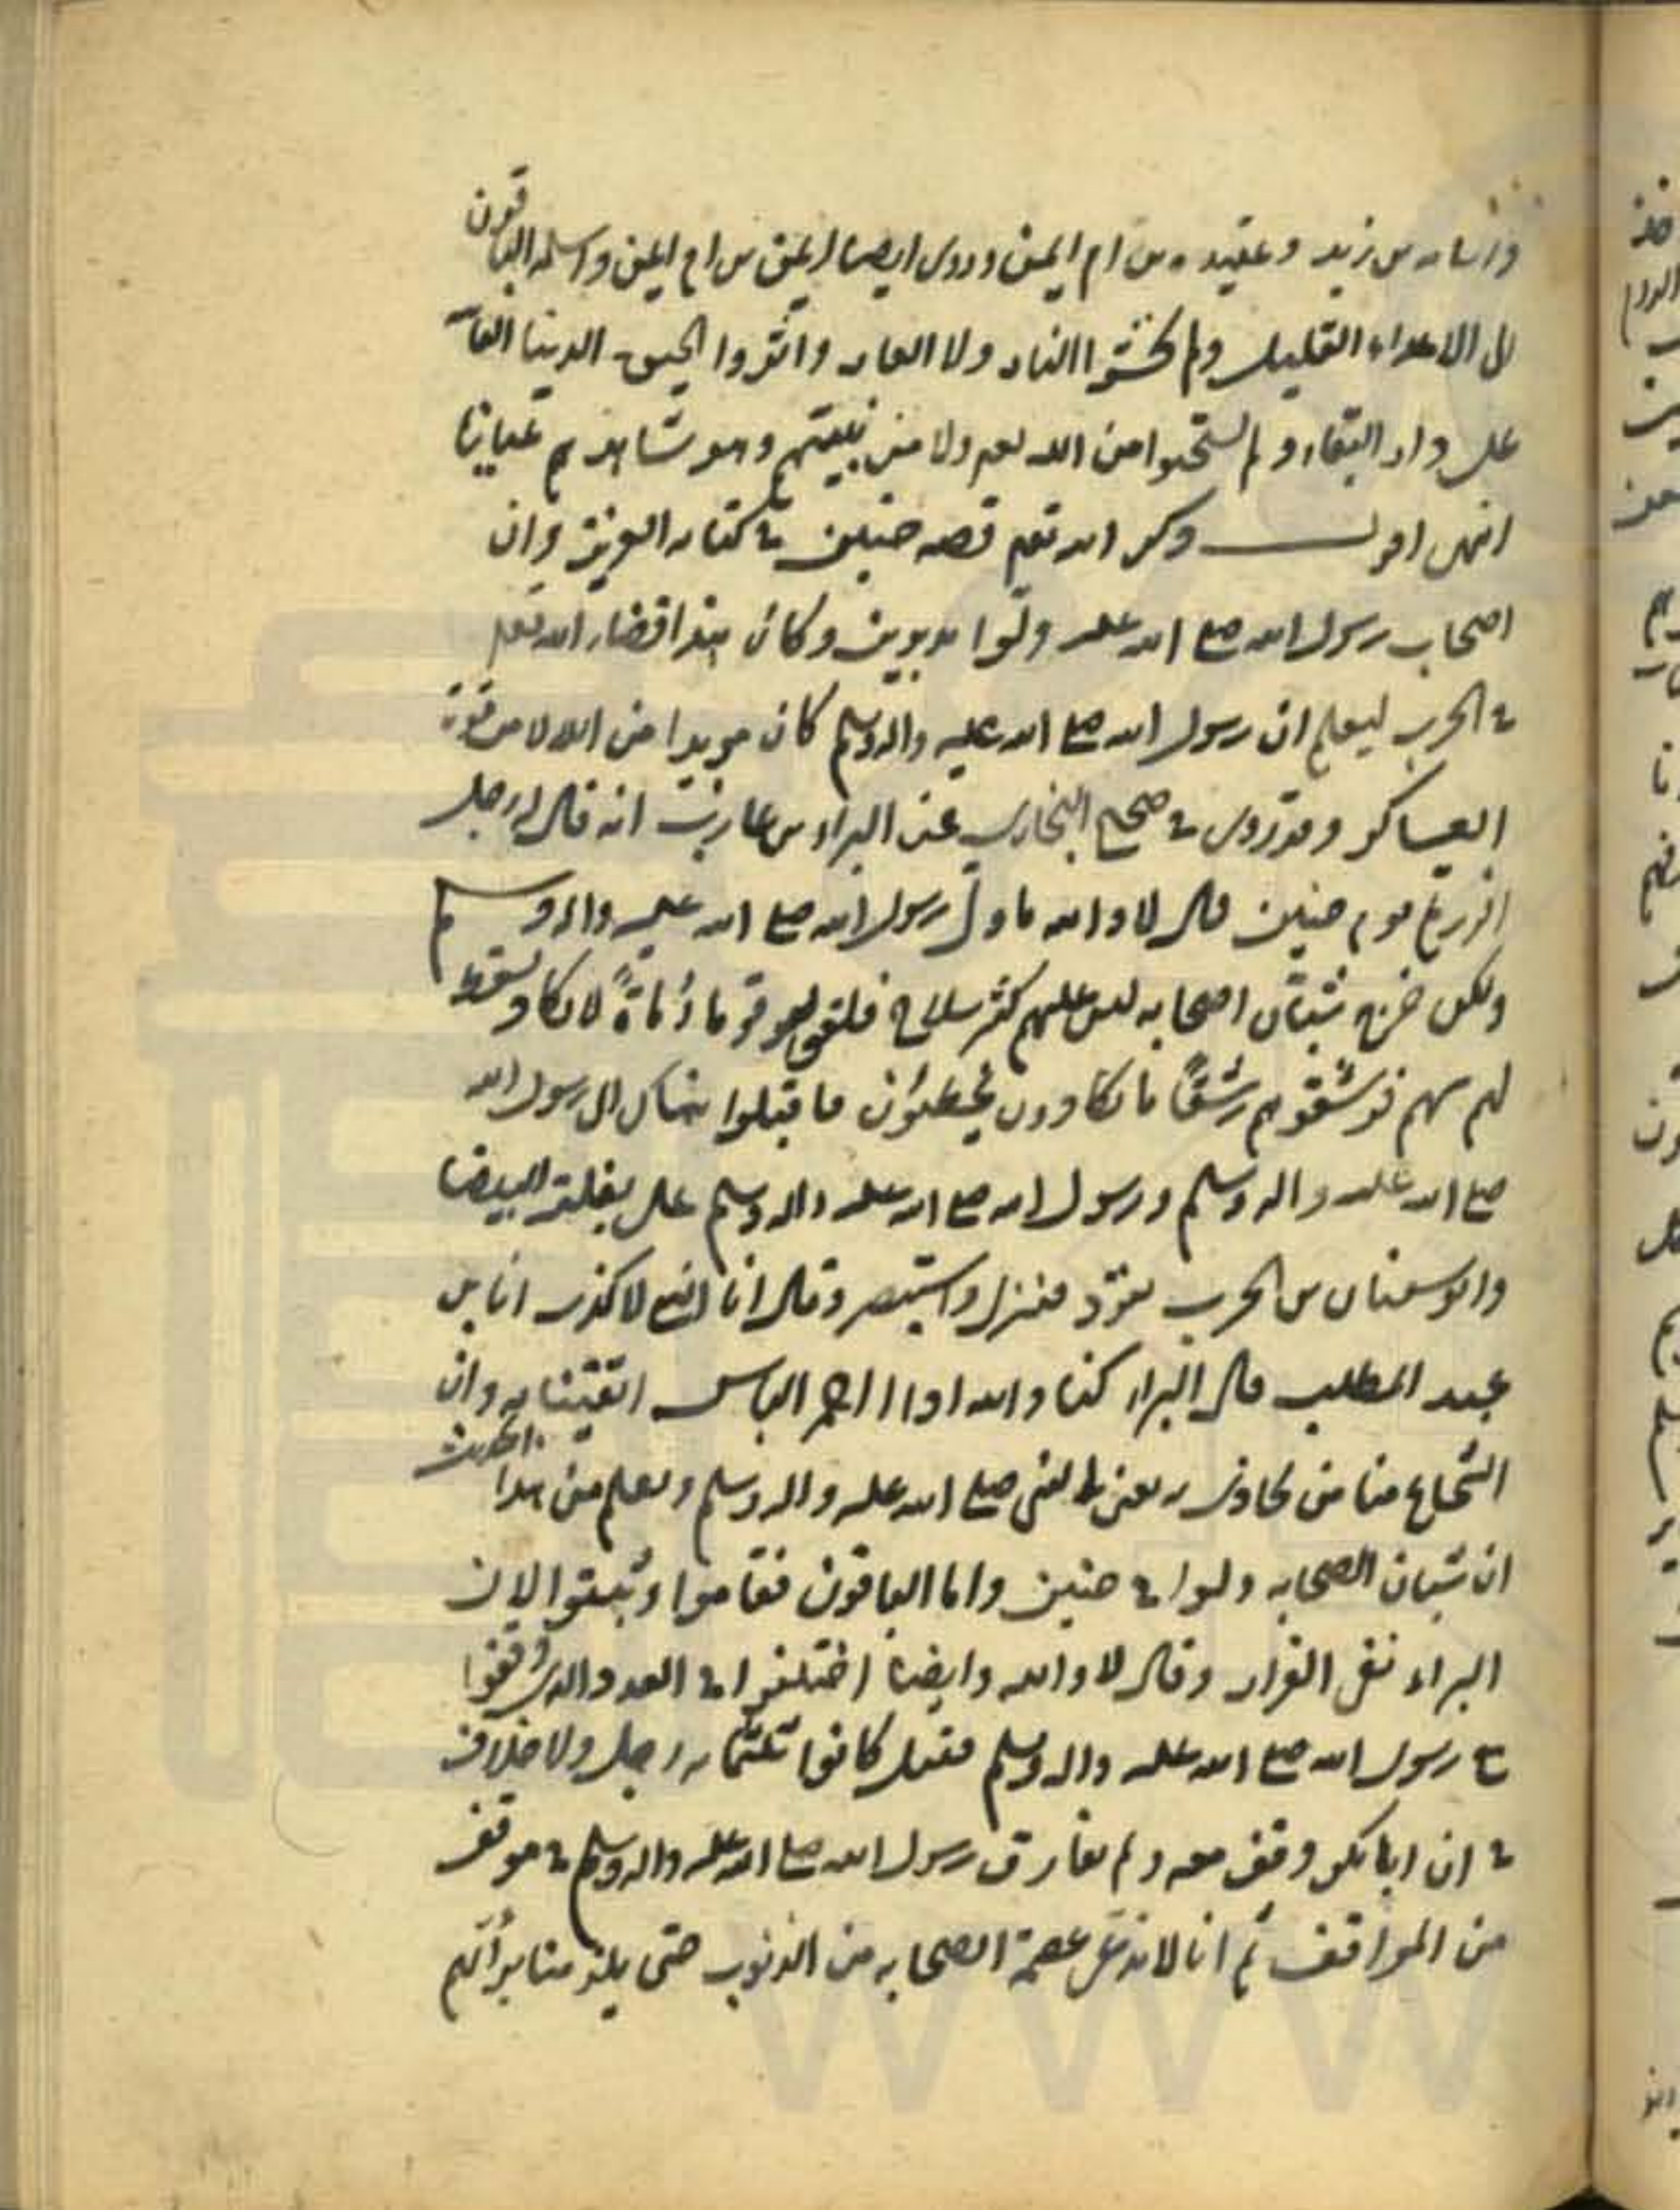 واسامه بن زيد وعبيده بن ام ايمن وروى ايضا ايمن بن ام ايمن واسلمه الباقون
الى الاعداء القليل ولم يخشوا النار ولا العار واثروا الحيوة الدنيا الفا
على دار البقاء ولم يستحيوا من الله تعم ولا من نبيهم وهو شاهدهم عيانا
انتهى اقول ذكر الله تعم قصه حنين في كتابه العزيز وان
اصحاب رسول الله صلع الله عليه ولوا مدبرين وكان هذا قضاء الله تعم
في الحرب ليعلم ان رسول الله صلع الله عليه واله وسلم كان مويدا من الله لا من قوة
العساكر وقد روى في صحيح البخارى عن البراء بن عازب انه قال له رجل
افررتم يوم حنين قال لا والله ما ولى رسول الله صلع الله عليه واله وسلم
ولكن خرج شبان اصحابه ليس عليهم كثر سلاح فلقوا قوما رُماةً لا يكاد يسقط
لهم سهم فرشقوهم رشقًا ما يكادون يخطئون فاقبلوا هناك الى رسول الله
صلع الله عليه واله وسلم ورسول الله صلع الله عليه واله وسلم على بغلته البيضا
وابو سفيان بن الحرب يقوّد فنزل واستنصر وقال انا النبي لا كذب انا بن
عبد المطلب قال البراء كنا والله اذا احمر الباس اتقينا به وان
الشجاع منا من يحاذى به يعنى النبي صلع الله عليه واله وسلم ويعلم من هذا الحديث
ان شبان الصحابه ولوا في حنين واما الباقون فقاموا وثبتوا لان
البراء نفى الفرار وقال لا والله وايضا اختلفوا في العدد الذى وقفوا
مع رسول الله صلع الله عليه واله وسلم فقيل كانوا ثلثمائه رجل ولا خلاف
في ان ابا بكر وقف معه ولم يفارق رسول الله صلع الله عليه واله وسلم في موقف
من المواقف ثم انا لا ندعى عصمة الصحابه من الذنوب حتى يلزمنا براتهم